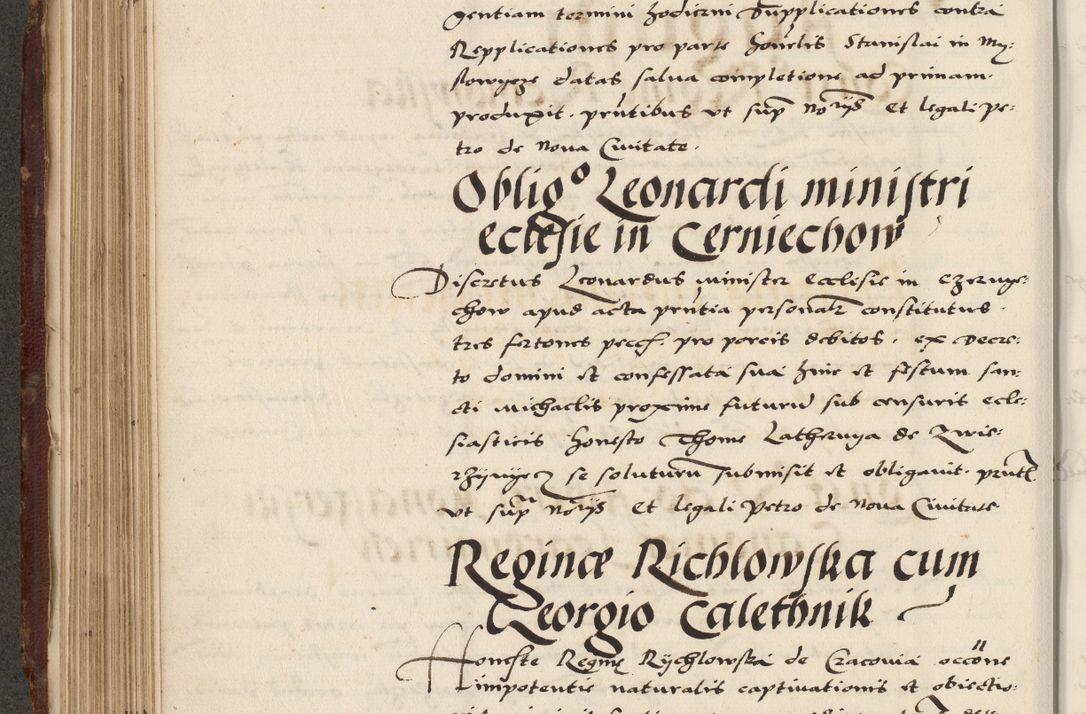 gentiam termini hodierni Supplicationes contra
Repplicationes pro parte honelis Stanislai in My:
slowycze datas salva completione ad primam
produxit. prntibus ut sup norys Et legali Pe:
tro de Nova Civitate.
Obligo Leonardi ministri
ecclesie in Cerniechow
Discretus Leonardus minister Ecclesie in Czernye:
chow apud acta prntia personalr constitutus.
tres fertones peccf. pro porcis debitos. ex Decre:
to domini et confessata sua hinc et festum san:
cti Michaelis proxime futurum sub censuris eccle:
siasticis honesto Thome Lathernya de Zwie:
rzhynyecz se soluturum submisit et obligavit. prntb
ut sup norys Et legali Petro de Nova Civitate
Reginæ Richlowska cum
Georgio Calethnik
Honeste Regine Rychlowska de Cracovia occone
impotentie naturalis captivationis et obiectio: